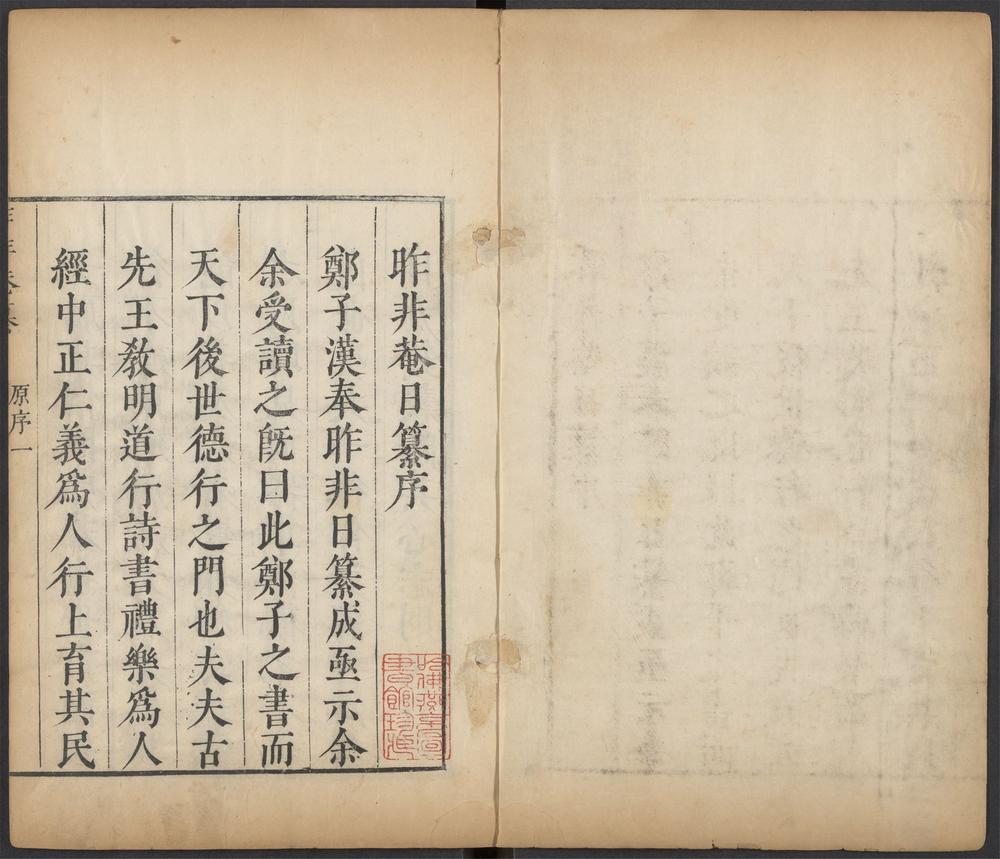 昨非菴日纂序
鄭子漢奉昨非日纂成亟示余
余受讀之旣曰此鄭子之書而
天下後世德行之門也夫夫古
先王敎明道行詩書禮樂爲人
經中正仁義爲人行上育其民
原序一
哈佛燕京圖
書館珍藏